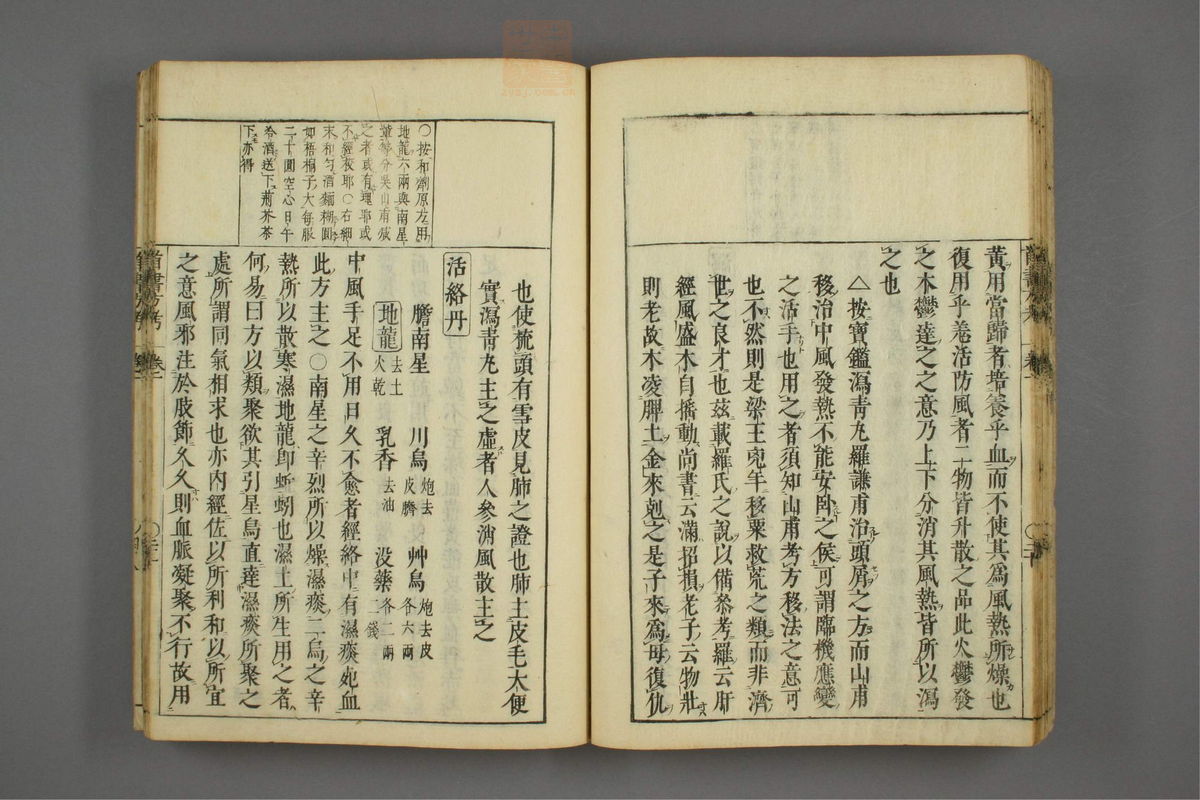 黃用當歸者培養乎血而不使其爲風熱所燥也
復用乎羗活防風者二物皆升散之品此火鬱發
之木鬱達之之意乃上下分消其風熱皆所以瀉
之也
△按寶鑑瀉青丸羅謙甫治頭屑之方而山甫
移治中風發熱不能安卧之候可謂臨機應變
之活手也用之者須知山甫考方移法之意可
也不然則是梁王兇年移粟救荒之類而非濟
世之良才也茲載羅氏之說以備叅考羅云肝
經風盛木自搖動尚書云滿招損老子云物壯
則老故木凌脾土金來剋之是子來爲母復仇
也使梳頭有雪皮見肺之證也肺主皮毛大便
實瀉青丸主之虛者人參消風散主之
活絡丹
膽南星 川烏炮去皮臍 艸烏炮去皮各六兩
地龍去土火乾 乳香去油 没藥各二兩二錢
中風手足不用日久不愈者經絡中有濕痰死血
此方主之○南星之辛烈所以燥濕痰二烏之辛
熱所以散寒濕地龍卽蚯蚓也濕土所生用之者
何易曰方以類聚欲其引星烏直達濕痰所聚之
處所謂同氣相求也亦内經佐以所利和以所宜
之意風邪注於肢節久久則血脈凝聚不行故用
○按和劑原方用
地龍六兩與南星
輩等分吳山甫減
之者或有理耶或
不經校耶○右細
末和匀酒麵糊圓
如梧桐子大每服
二十圓空心日午
冷酒送下荊芥茶
下亦得